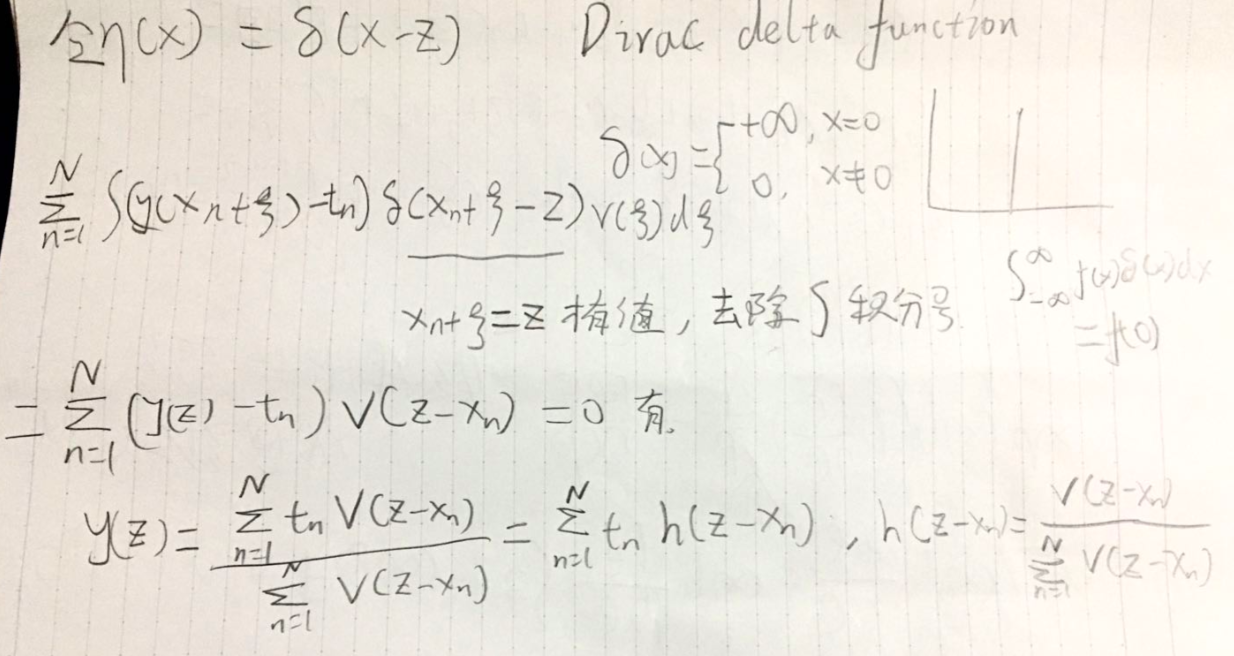 令η(x) = δ(x-z)   Dirac delta function
δ(x) = { +∞, x=0
0, x≠0
∑_{n=1}^{N} ∫(y(x_n+ξ)-t_n) δ(x_n+ξ-z) ν(ξ)dξ
∫_{-∞}^{∞} f(x)δ(x)dx
= f(0)
x_n+ξ=z 有值, 去除∫积分号
= ∑_{n=1}^{N} (y(z) - t_n) ν(z-x_n) = 0 有.
y(z) = \frac{∑_{n=1}^{N} t_n ν(z-x_n)}{∑_{n=1}^{N} ν(z-x_n)} = ∑_{n=1}^{N} t_n h(z-x_n), h(z-x_n) = \frac{ν(z-x_n)}{∑_{n=1}^{N} ν(z-x_n)}